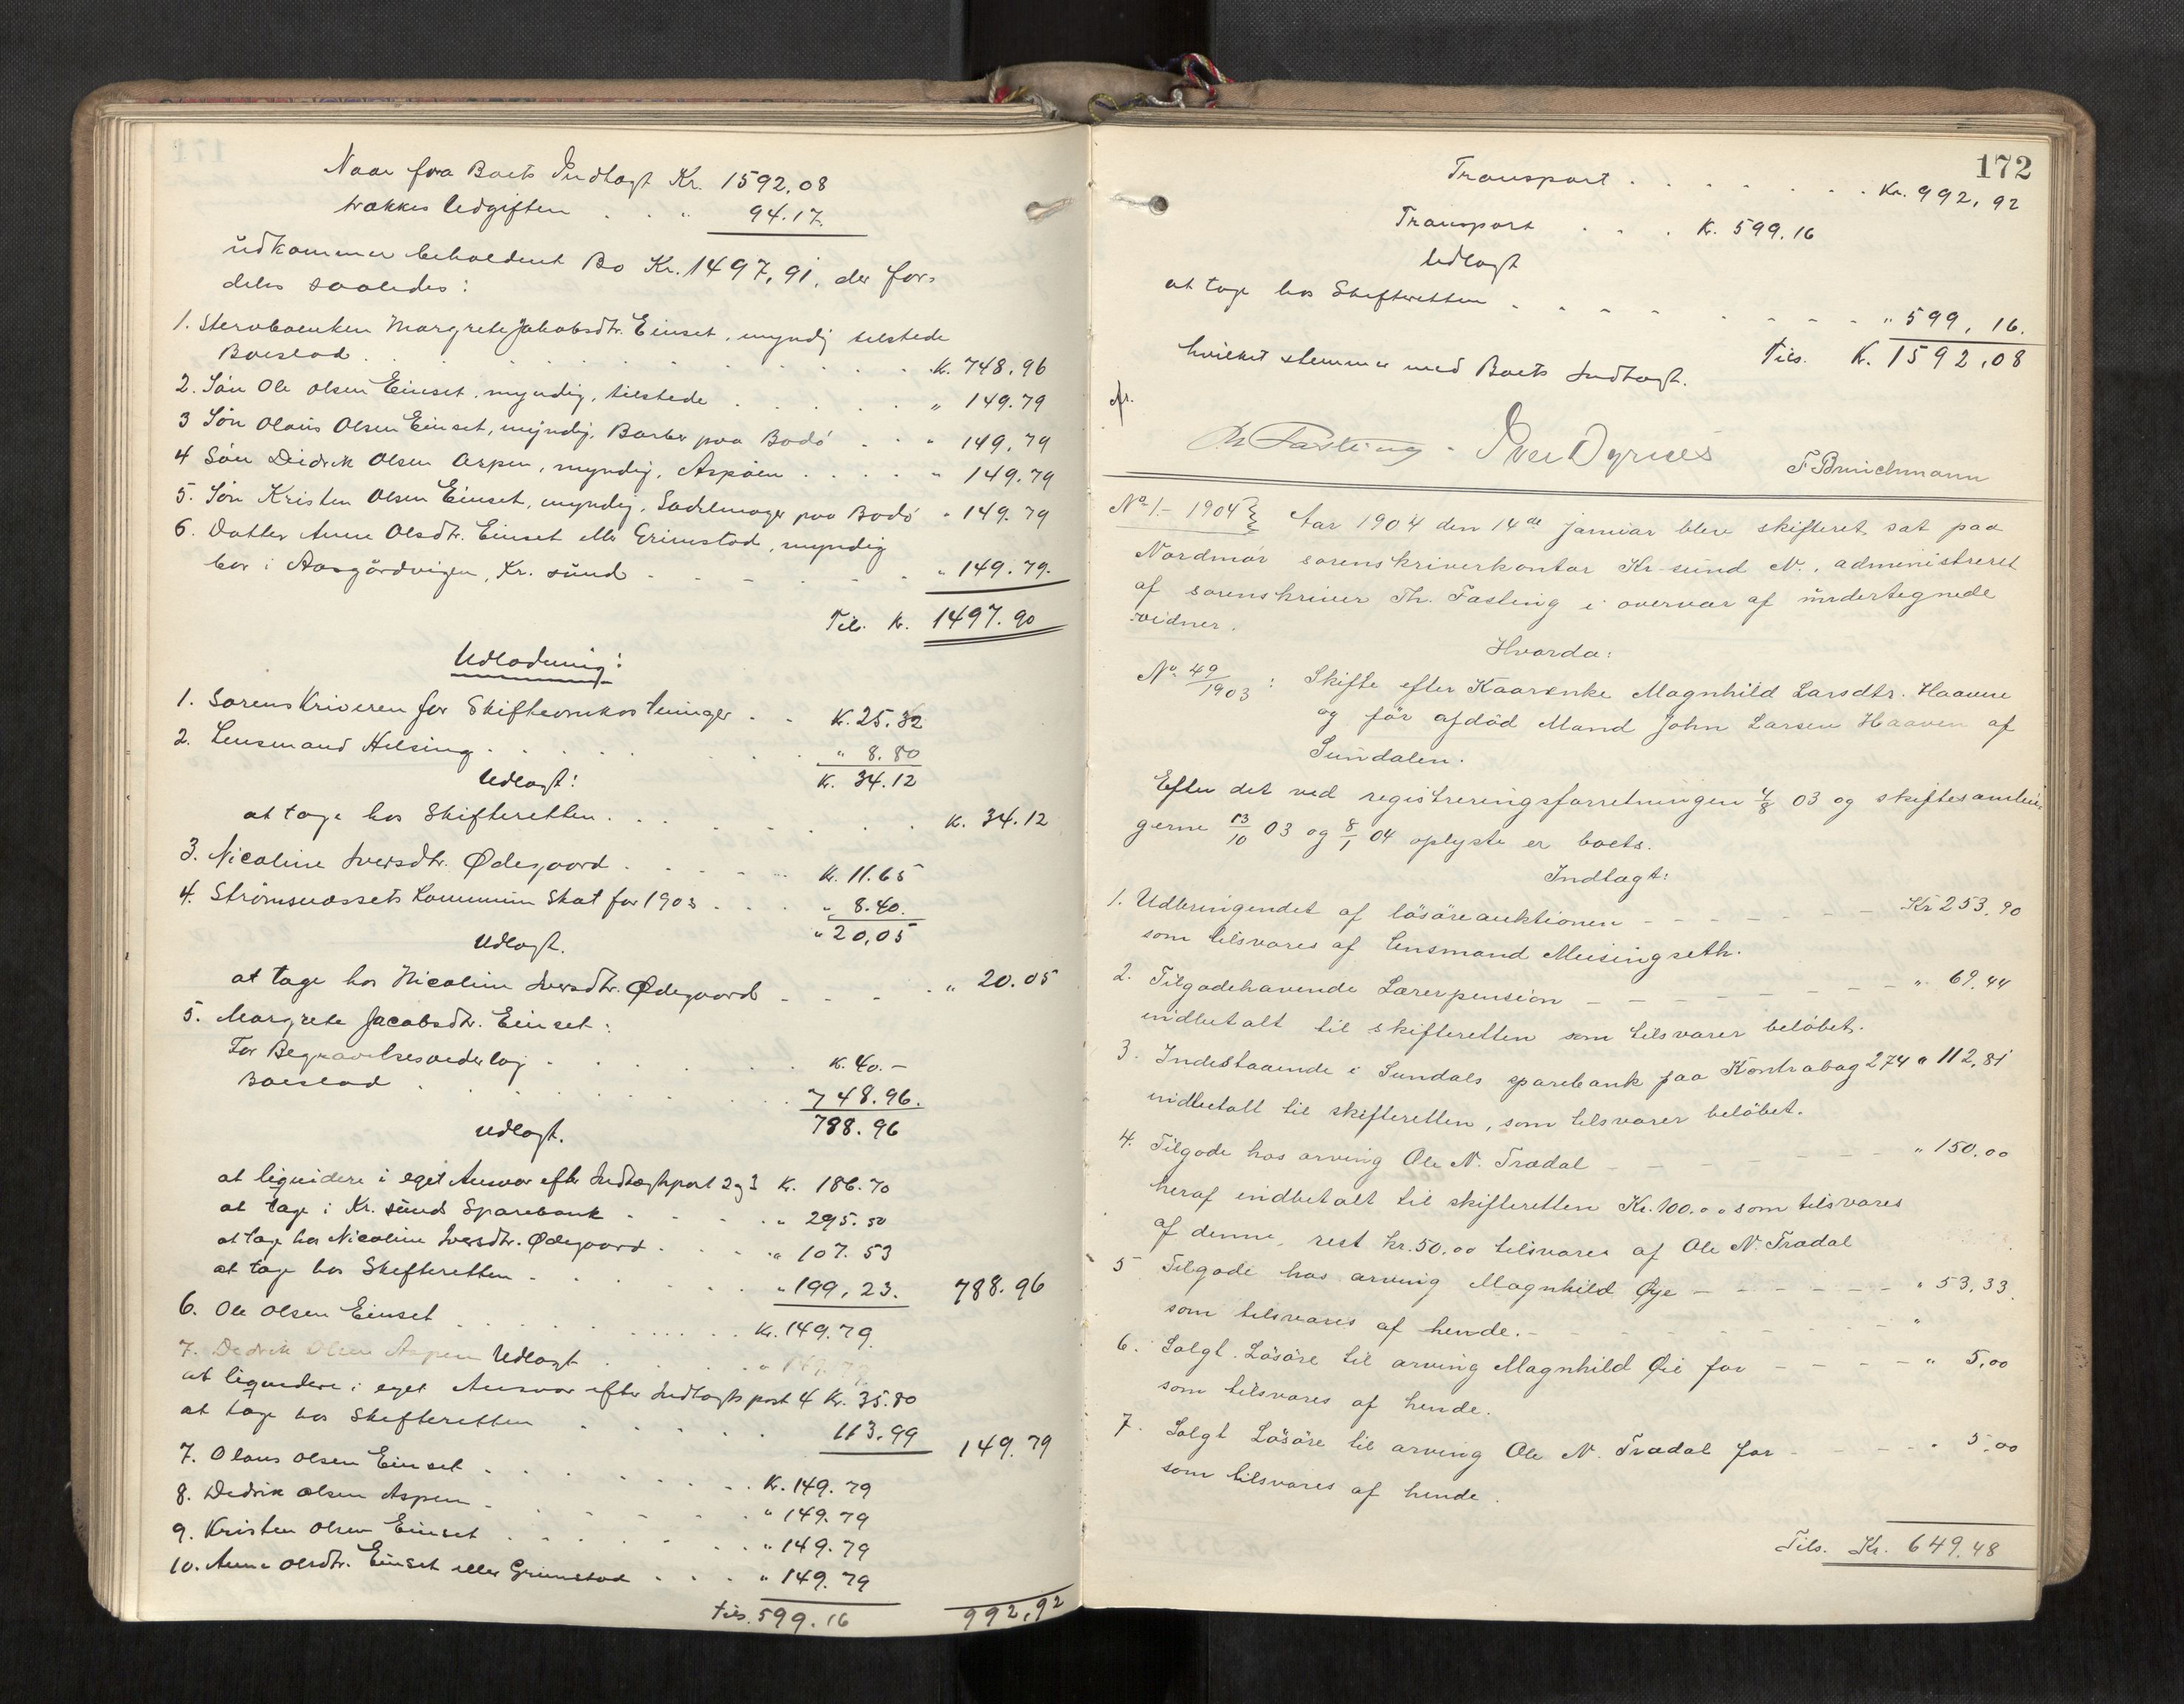 Naar fra Boets Indtægt Kr. 1592,08
trækkes Udgiften . . " 94.17.
udkommer beholdent Bo Kr. 1497,91, der for-
deles saaledes:
1. Stervboenken Margrete Jakobsdtr. Einset, myndig tilstede
Boeslod . . . K. 748.96
2. Søn Ole Olsen Einset, myndig, tilstede . . . " 149.79
3 Søn Olaus Olsen Einset, myndig, Barber paa Bodö . . " 149,79
4 Søn Didrik Olsen Aspen, myndig, Aspøen . . . " 149.79
5. Søn Kristen Olsen Einset, myndig, Sadelmager paa Bodö " 149.79
6. Datter Anne Olsdtr. Einset eller Grimstad, myndig
bor i Aasgårdvigen, Kr. sund . . . " 149.79.
Til. K. 1497.90
Udlodning:
1. Sorenskriveren for Skifteomkostninger . . K. 25.32
2. Lensmand Helsing . . . " 8.80
Udlagt: K. 34.12
at tage hos Skifteretten . . . K. 34.12
3. Nicoline Iversdtr. Ødegaard . . . K. 11.65
4. Strømsnæssets Kommune Skat for 1903 . . . " 8.40.
Udlagt. " 20,05
at tage hos Nicoline Iversdtr. Ødegaard . . . " 20.05
5. Margrete Jacobsdtr. Einset:
For Begravelsesvederlag . . . K. 40.-
Boeslod . . . 748.96.
Udlagt. 788.96
at liquidere i eget Ansvar efter Indtægtspost 2 og 3 K. 186.70
at tage i Kr. sunds Sparebank . . . " 295.50
at tage hos Nicoline Iversdtr. Ødegaard . . . " 107.53
at tage hos Skifteretten . . . " 199,23. 788.96
6. Ole Olsen Einset . . . K. 149.79.
7. Dedrik Olsen Aspen Udlagt . . . " 149.79
at liquidere i eget Ansvar efter Indtægtspost 4 K. 35.80
at tage hos Skifteretten . . . 113.99 149.79
7. Olaus Olsen Einset . . . K. 149.79
8. Dedrik Olsen Aspen . . . " 149.79
9. Kristen Olsen Einset . . . " 149.79
10. Anne Olsdtr. Einset eller Grimstad . . . " 149.79
Tils. 599.16 992,92
172
Transport . . . Kr. 992,92
Transport . . . K. 599.16
Udlagt
at tage hos Skifteretten . . . " 599,16.
Tils. K. 1592,08
hvilket stemmer med Boets Indtægt.
Th Fasting. Iver Dyrnes F Brinchmann
No 1.- 1904 Aar 1904 den 14de januar blev skifteret sat paa
Nordmør sorenskriverkontor Kr-sund N., administreret
af sorenskriver Th. Fasting i overvær af undertegnede
vidner.
Hvorda:
No. 49/1903 : Skifte efter Kaarenke Magnhild Larsdtr. Haaven
og før afdöd Mand John Larsen Haaven af
Sundalen.
Efter det ved registreringsforretningen 4/8 03 og skiftesamlin-
gerne 13/10 03 og 8/1 04 oplyste er boets.
Indtægt:
1. Udbringendet af lösöreauktionen - - - Kr 253,90
som tilsvares af Lensmand Meisingseth.
2. Tilgodehavende Lærerpension - - - " 69,44
indbetalt til skifteretten som tilsvarer belöbet.
3. Indestaaende i Sundals sparebank paa Kontrabog 274 " 112,81
indbetalt til skifteretten, som tilsvarer belöbet.
4. Tilgode hos arving Ole N. Trædal - - - " 150,00
heraf indbetalt til skifteretten Kr. 100.00 som tilsvares
af denne, rest kr. 50,00 tilsvares af Ole N. Trædal
5 Tilgode hos arving Magnhild Øye - - - " 53,33.
som tilsvares af hende. - - - "
6. Solgt Lösöre til arving Magnhild Øie for - - - " 5,00
som tilsvares af hende.
7. Solgt Lösöre til arving Ole N. Trædal for - - - " 5,00
som tilsvares af hende.
Tils. Kr. 649,48